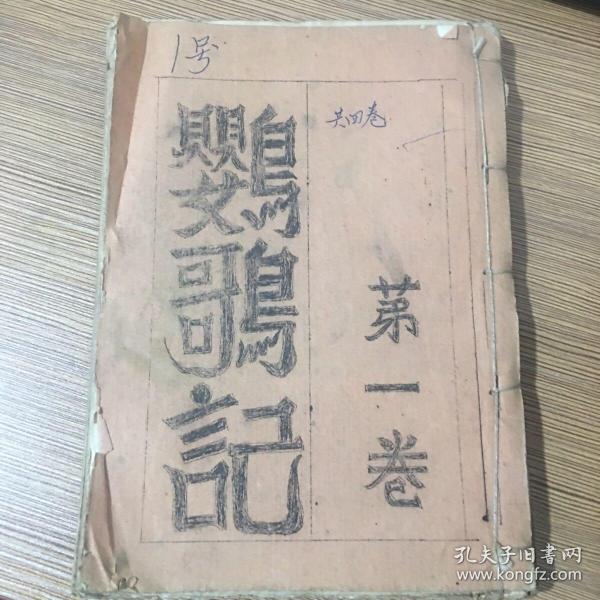 1号
共四卷
鸚鴚記
第一卷
孔夫子旧书网
www.kongfz.com